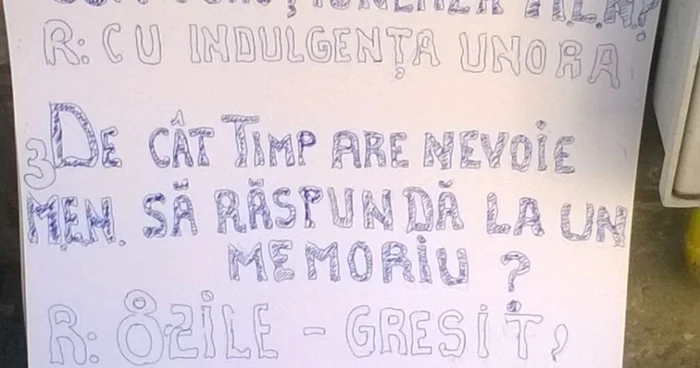 M.E.N?
R: CU INDULGENȚA UNORA
3 DE CÂT TIMP ARE NEVOIE
M.E.N. SĂ RĂSPUNDĂ LA UN
MEMORIU ?
R: 8 ZILE - GRESIT,